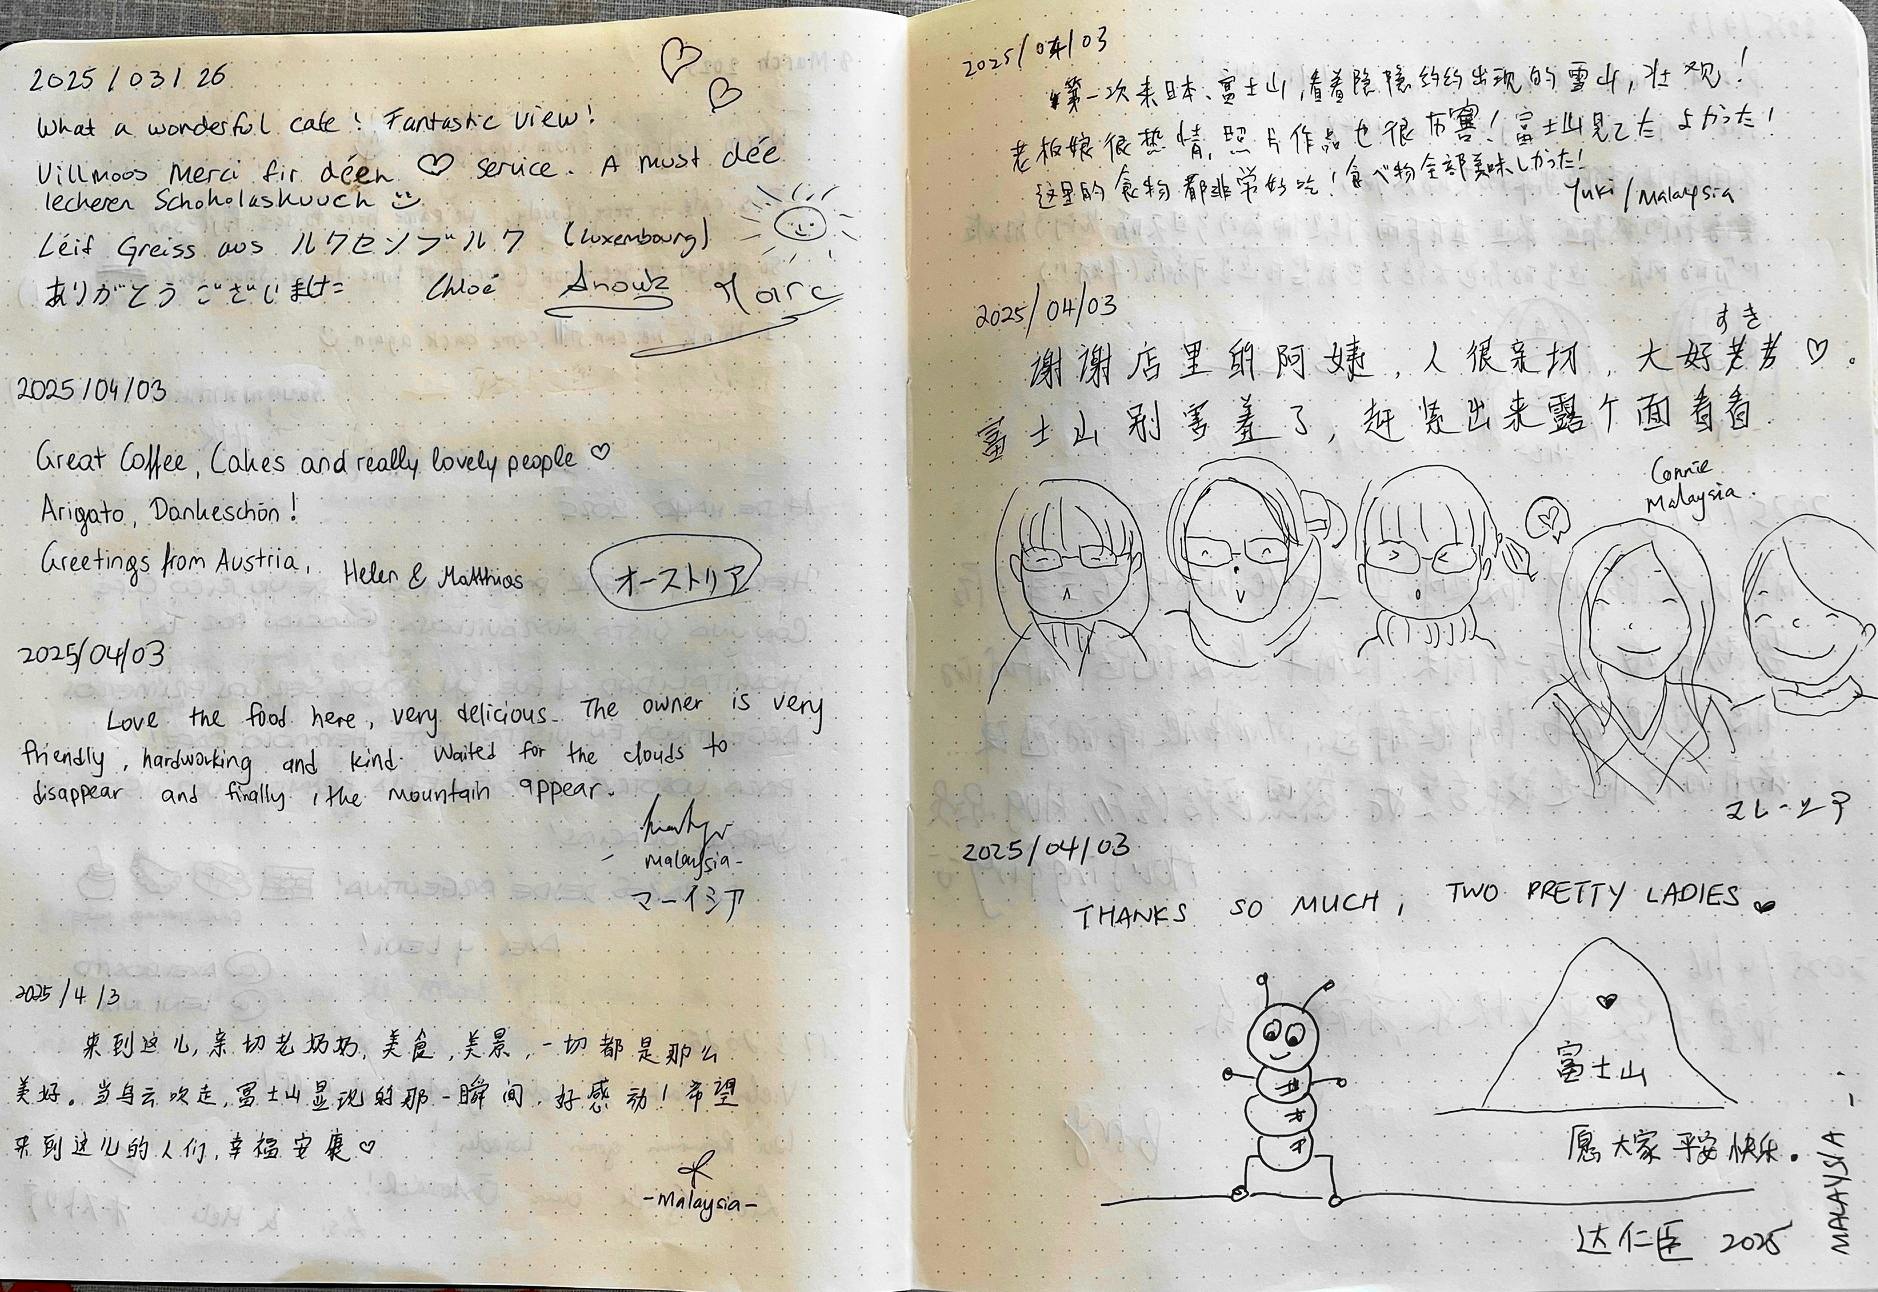 2025/03/26
What a wonderful cafe! Fantastic view!
Villmoos Merci fir déen ♡ service. A must dée
lecheren Schokolaskuuch
Léif Greiss aus ルクセンブルク (Luxembourg)
ありがとうございました
Chloé Anouk Marc
2025/04/03
Great Coffee, Cakes and really lovely people ♡
Arigato, Dankeschön!
Greetings from Austria, Helen & Matthias オーストリア
2025/04/03
Love the food here, very delicious. The owner is very
friendly, hardworking and kind. Waited for the clouds to
disappear and finally, the mountain appear.
Malaysia-
マーイシア
2025/4/3
来到这儿,亲切老奶奶,美食,美景,一切都是那么
美好。当乌云吹走,富士山显现的那一瞬间,好感动!希望
来到这儿的人们,幸福安康♡
-Malaysia-
2025/04/03
第一次来日本、富士山,看着隐隐约约出现的雪山,壮观!
老板娘很热情,照片作品也很厉害!富士山見てたよかった!
这里的食物都非常好吃!食べ物全部美味しかった!
Yuki/Malaysia
2025/04/03
すき
谢谢店里的阿婕,人很亲切,大好き ♡。
富士山别害羞了,赶紧出来露个面看看
Connie
Malaysia.
マレーシア
2025/04/03
THANKS SO MUCH, TWO PRETTY LADIES ♥
富士山
愿大家平安快乐.
达仁臣 2025
MALAYSIA